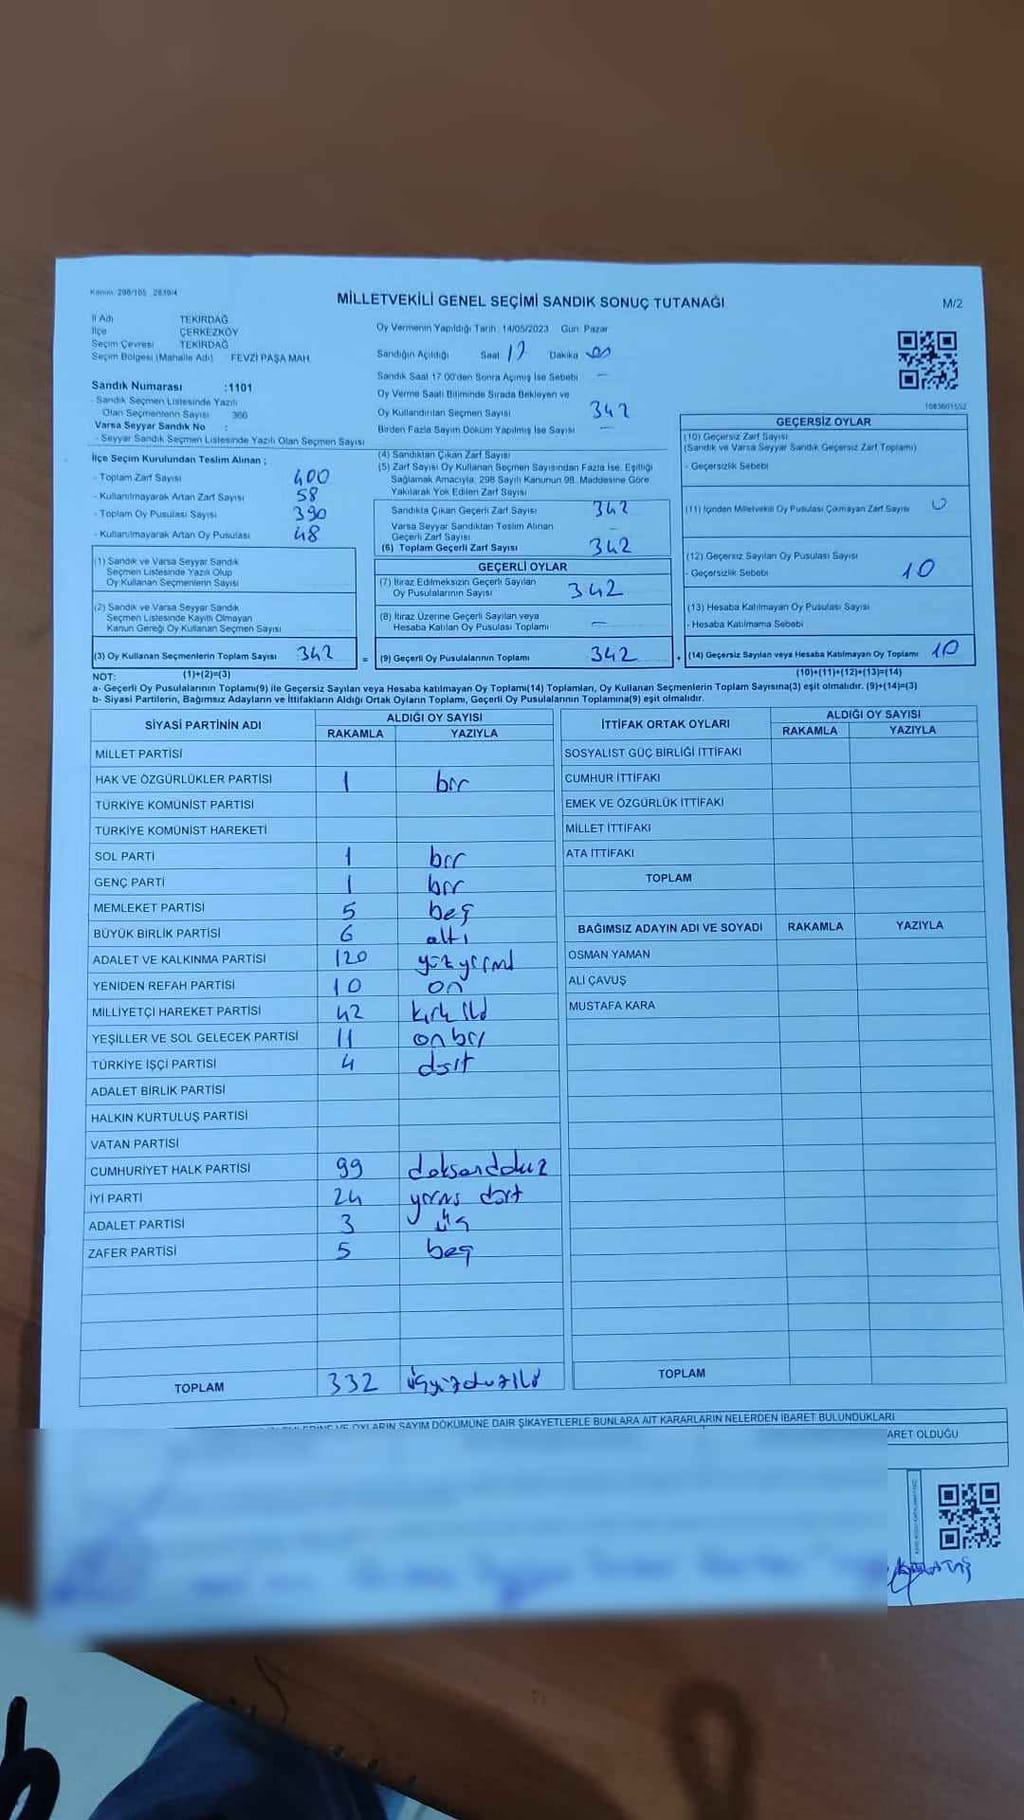 Kanun: 298/105 2839/4
MİLLETVEKİLİ GENEL SEÇİMİ SANDIK SONUÇ TUTANAĞI
M/2
İl Adı TEKİRDAĞ
İlçe ÇERKEZKÖY
Seçim Çevresi TEKİRDAĞ
Seçim Bölgesi (Mahalle Adı) FEVZİ PAŞA MAH.
Sandık Numarası :1101
- Sandık Seçmen Listesinde Yazılı
Olan Seçmenlerin Sayısı 360
Varsa Seyyar Sandık No :
- Seyyar Sandık Seçmen Listesinde Yazılı Olan Seçmen Sayısı
İlçe Seçim Kurulundan Teslim Alınan ;
- Toplam Zarf Sayısı 400
- Kullanılmayarak Artan Zarf Sayısı 58
- Toplam Oy Pusulası Sayısı 390
- Kullanılmayarak Artan Oy Pusulası 48
(1) Sandık ve Varsa Seyyar Sandık
Seçmen Listesinde Yazılı Olup
Oy Kullanan Seçmenlerin Sayısı
(2) Sandık ve Varsa Seyyar Sandık
Seçmen Listesinde Kayıtlı Olmayan
Kanun Gereği Oy Kullanan Seçmen Sayısı
(3) Oy Kullanan Seçmenlerin Toplam Sayısı 342
Oy Vermenin Yapıldığı Tarih: 14/05/2023 Gün: Pazar
Sandığın Açıldığı Saat 17 Dakika 00
Sandık Saat 17:00'den Sonra Açılmış İse Sebebi —
Oy Verme Saati Bitiminde Sırada Bekleyen ve
Oy Kullandırılan Seçmen Sayısı 342
Birden Fazla Sayım Döküm Yapılmış İse Sayısı —
(4) Sandıktan Çıkan Zarf Sayısı
(5) Zarf Sayısı Oy Kullanan Seçmen Sayısından Fazla İse, Eşitliği
Sağlamak Amacıyla, 298 Sayılı Kanunun 98. Maddesine Göre
Yakılarak Yok Edilen Zarf Sayısı
Sandıkta Çıkan Geçerli Zarf Sayısı 342
Varsa Seyyar Sandıktan Teslim Alınan
Geçerli Zarf Sayısı —
(6) Toplam Geçerli Zarf Sayısı 342
GEÇERLİ OYLAR
(7) İtiraz Edilmeksizin Geçerli Sayılan
Oy Pusulalarının Sayısı 342
(8) İtiraz Üzerine Geçerli Sayılan veya
Hesaba Katılan Oy Pusulası Toplamı —
= (9) Geçerli Oy Pusulalarının Toplamı 342
1083601552
GEÇERSİZ OYLAR
(10) Geçersiz Zarf Sayısı
(Sandık ve Varsa Seyyar Sandık Geçersiz Zarf Toplamı)
- Geçersizlik Sebebi
(11) İçinden Milletvekili Oy Pusulası Çıkmayan Zarf Sayısı 0
(12) Geçersiz Sayılan Oy Pusulası Sayısı
- Geçersizlik Sebebi 10
(13) Hesaba Katılmayan Oy Pusulası Sayısı
- Hesaba Katılmama Sebebi
+ (14) Geçersiz Sayılan veya Hesaba Katılmayan Oy Toplamı 10
NOT: (1)+(2)=(3) (10)+(11)+(12)+(13)=(14)
a- Geçerli Oy Pusulalarının Toplamı(9) ile Geçersiz Sayılan veya Hesaba katılmayan Oy Toplamı(14) Toplamları, Oy Kullanan Seçmenlerin Toplam Sayısına(3) eşit olmalıdır. (9)+(14)=(3)
b- Siyasi Partilerin, Bağımsız Adayların ve İttifakların Aldığı Ortak Oyların Toplamı, Geçerli Oy Pusulalarının Toplamına(9) eşit olmalıdır.
SİYASİ PARTİNİN ADI ALDIĞI OY SAYISI
RAKAMLA YAZIYLA
MİLLET PARTİSİ
HAK VE ÖZGÜRLÜKLER PARTİSİ 1 bir
TÜRKİYE KOMÜNİST PARTİSİ
TÜRKİYE KOMÜNİST HAREKETİ
SOL PARTİ 1 bir
GENÇ PARTİ 1 bir
MEMLEKET PARTİSİ 5 beş
BÜYÜK BİRLİK PARTİSİ 6 altı
ADALET VE KALKINMA PARTİSİ 120 yüzyirmi
YENİDEN REFAH PARTİSİ 10 on
MİLLİYETÇİ HAREKET PARTİSİ 42 kırkiki
YEŞİLLER VE SOL GELECEK PARTİSİ 11 onbir
TÜRKİYE İŞÇİ PARTİSİ 4 dört
ADALET BİRLİK PARTİSİ
HALKIN KURTULUŞ PARTİSİ
VATAN PARTİSİ
CUMHURİYET HALK PARTİSİ 99 doksandokuz
İYİ PARTİ 24 yirmi dört
ADALET PARTİSİ 3 üç
ZAFER PARTİSİ 5 beş
TOPLAM 332 üçyüzotuziki
İTTİFAK ORTAK OYLARI ALDIĞI OY SAYISI
RAKAMLA YAZIYLA
SOSYALİST GÜÇ BİRLİĞİ İTTİFAKI
CUMHUR İTTİFAKI
EMEK VE ÖZGÜRLÜK İTTİFAKI
MİLLET İTTİFAKI
ATA İTTİFAKI
TOPLAM
BAĞIMSIZ ADAYIN ADI VE SOYADI RAKAMLA YAZIYLA
OSMAN YAMAN
ALİ ÇAVUŞ
MUSTAFA KARA
TOPLAM
VE OYLARIN SAYIM DÖKÜMÜNE DAİR ŞİKAYETLERLE BUNLARA AİT KARARLARIN NELERDEN İBARET BULUNDUKLARI
ARET OLDUĞU